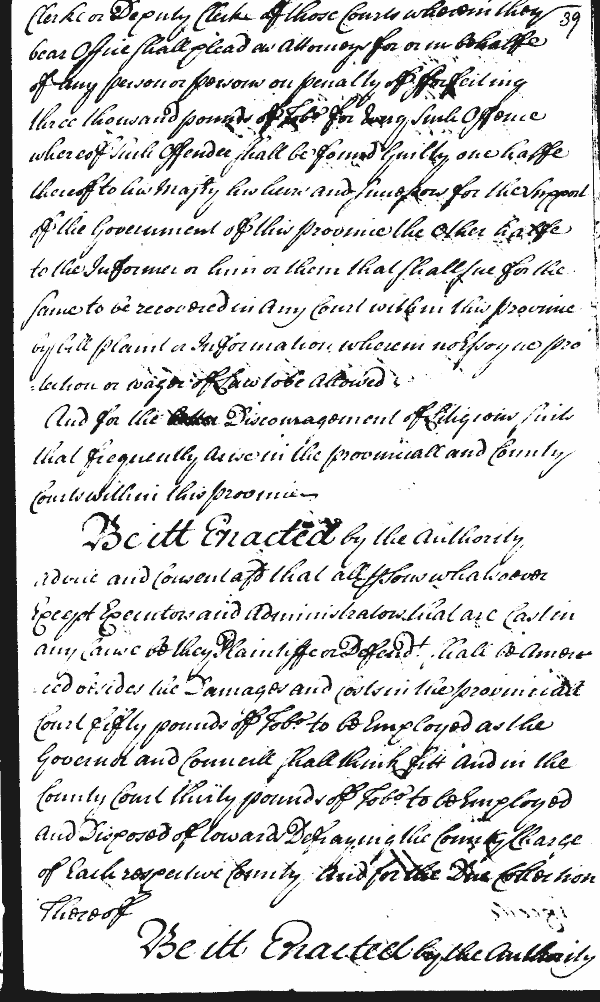 Clerke or Deputy Clerke of those Courts wherein they 39
bear Office shall plead as Attorneys for or in behalfe
of any person or persons on penalty of forfeiting
three thousand pounds of Tobo for Such Offence
whereof Such Offender shall be found Guilty one halfe
thereof to his Majty his heirs and Successors for the Support
of the Government of this Province the Other halfe
to the Informer or him or them that shall sue for the
same to be recovered in Any Court within this Province
by bill plaint or Information wherein no Essoyne pro
tection or wager of Law to be Allowed
And for the Discouragement of Litigious suits
that frequently Arise in the provinciall and County
Courts within this province
Be itt Enacted by the Authority
advice and Consent afd that all whatsoever
Except Executors and Administrators that are Cast in
any Cause be they Plaintiffe or Defendt shall be Amer
ced besides the Damages and Costs in the provinciall
Court fifty pounds of Tobo to be Employed as the
Governor and Councill shall think fitt And in the
County Court thirty pounds of Tobo to be Employed
and Disposed of toward Defraying the County Charge
of Each respective County And for the Due Collection
Thereof
Be itt Enacted by the Authority